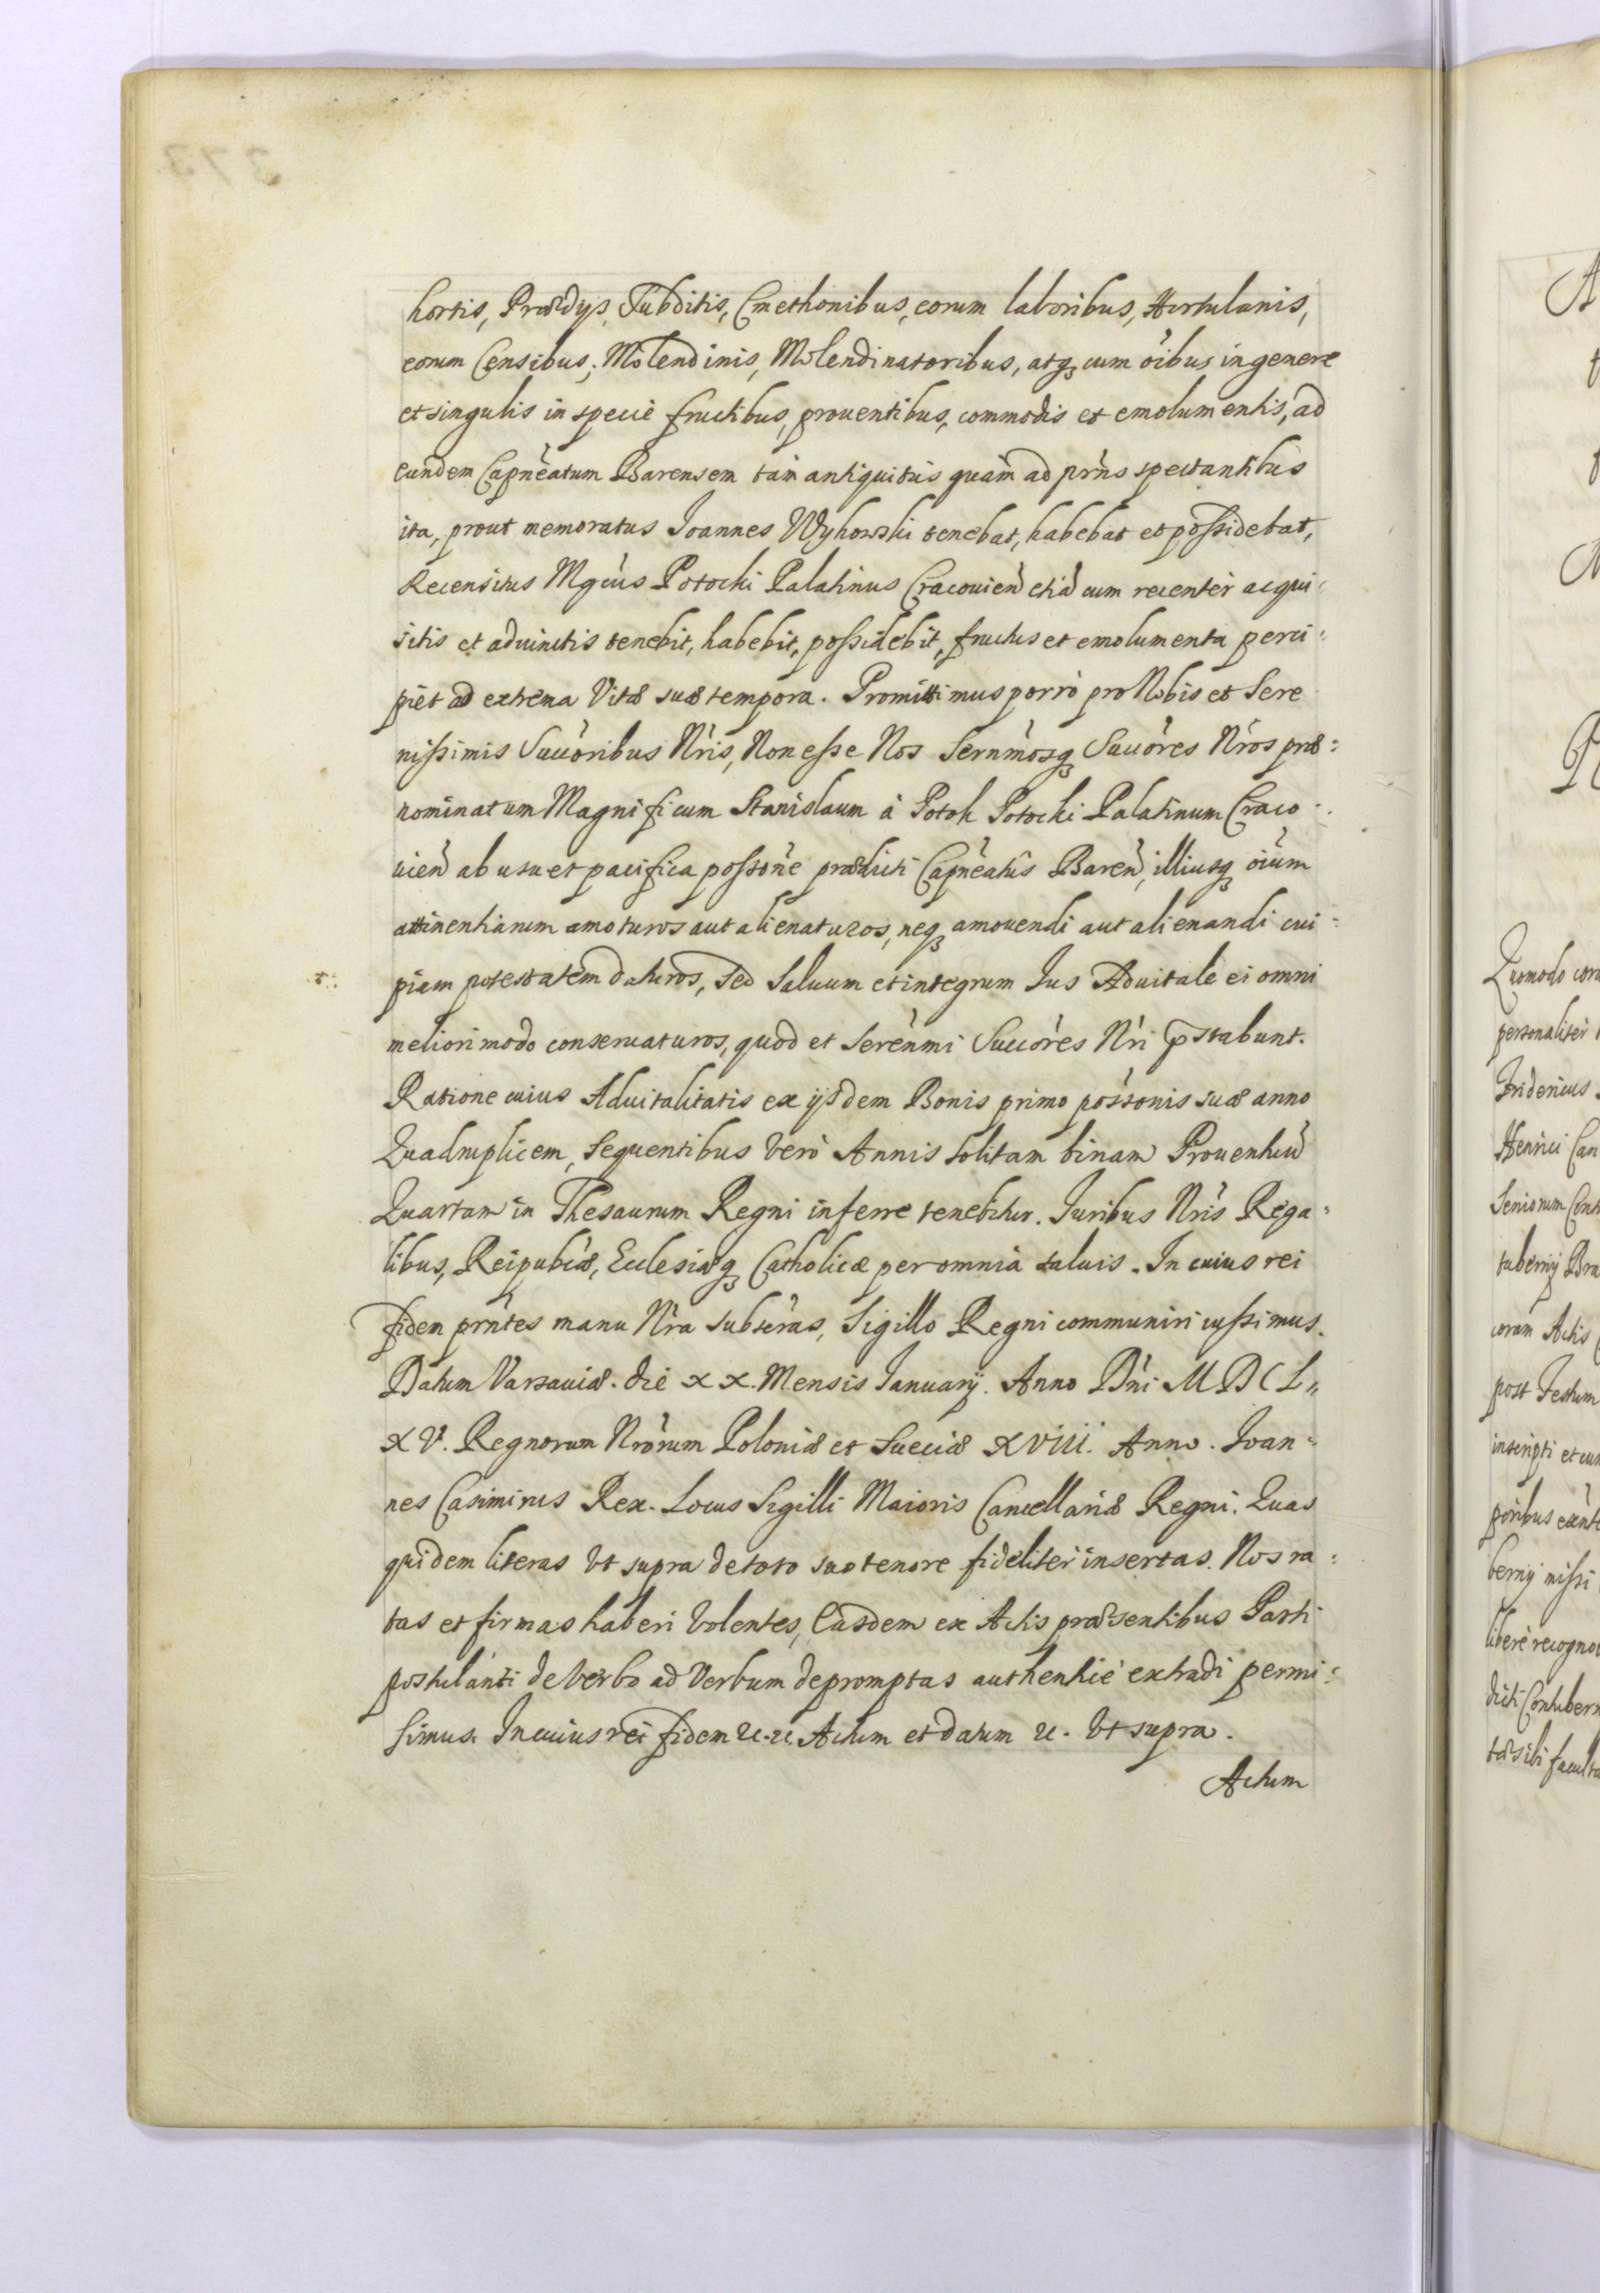 hortis, Prædijs, Subditis, Cmethonibus, eorum laboribus, Hortulanis,
eorum Censibus; Molendinis, Molendinatoribus, atq₃ cum oìbus in genere
et singulis in specie fructibus, prouentibus, commodis et emolumentis, ad
eundem Capnèatum Barensem tam antiquitùs quàm ad prǹs spectantibus
ita, prout memoratus Joannes Wyhowski tenebat, habebat et possidebat,
Recensitus Mgcùs Potocki Palatinus Cracouien̄ etiā cum recenter acqui-
sitis et aduinctis tenebit, habebit, possidebit, fructus et emolumenta perci-
piet ad extrema Vitæ suæ tempora. Promittimus porrò pro Nobis et Sere
nissimis Succoribus Nr̀is, Non esse Nos Sernm̀osq₃ Succòres Nr̀os præ-
nominatum Magnificum Stanislaum à Potok Potocki Palatinum Craco-
uien̄ ab usu et pacifica possòne prædicti Capnèatûs Baren̄, illiusq₃ oiùm
attinentiarum amoturos aut alienaturos, neq₃ amouendi aut alienandi cui-
piam potestatem daturos, sed Saluum et integrum Jus Aduitale ei omni
meliori modo conseruaturos, quod et Serènmi Succòres Nr̀i p̄stabunt.
Ratione cuius Aduitalitatis ex ijsdem Bonis primo possònis suæ anno
Quadruplicem, Sequentibus Verò Annis solitam binam Prouentuū
Quartam in Thesaurum Regni inferre tenebitur. Juribus Nr̀is Rega-
libus, Reipubcæ̀, Ecclesiæq₃ Catholicæ per omnia saluis. In cuius rei
fidem prǹtes manu Nr̀a subscràs, Sigillo Regni communiri iussimus.
Datum Varsauiæ. die XX. Mensis Januarij. Anno Dǹi MDCL„
XV. Regnorum Nròrum Poloniæ et Sueciæ XVIII. Anno. Joan-
nes Casimirus Rex. Locus Sigilli Maioris Cancellariæ Regni. Quas
quidem literas Vt supra de toto suo tenore fideliter insertas. Nos ra-
tas et firmas haberi Volentes, Easdem ex Actis præsentibus Parti
postulanti de Verbo ad Verbum depromptas authenticè extradi permi-
simus. In cuius rei fidem &c. &c. Actum et datum &c. Vt supra.
Actum
Quomodo
personaliter
Fridericus
Henrici Can
Seniorum Cont
tubernij Bra
coràm Actis
post Festum
inscripti et cum
bernij missi
liberè recogno
dicti Contubern